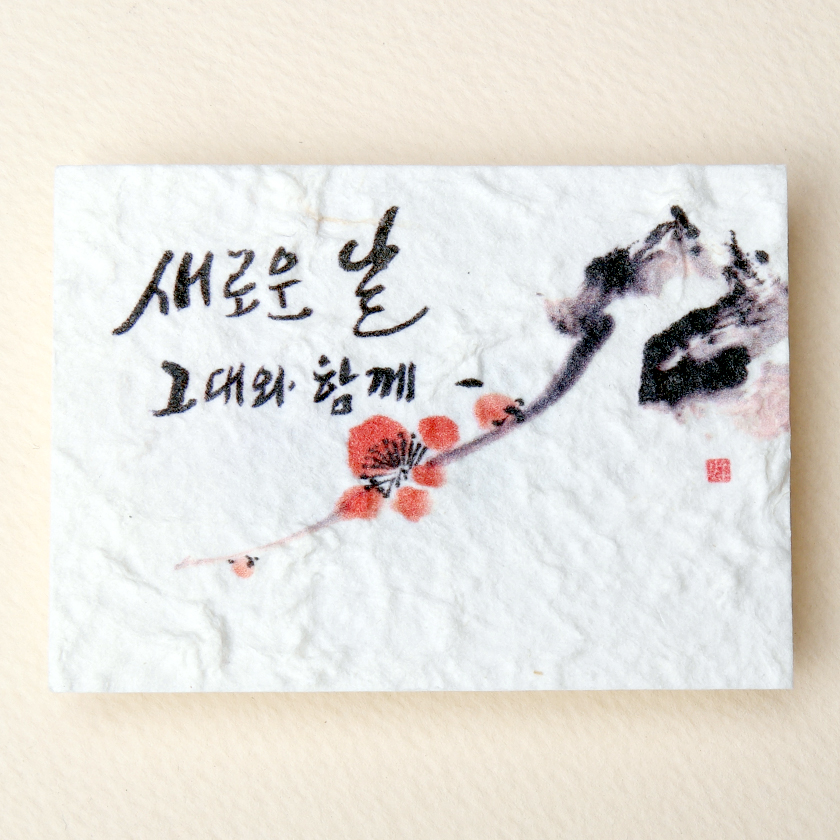 새로운 날
그대와 함께